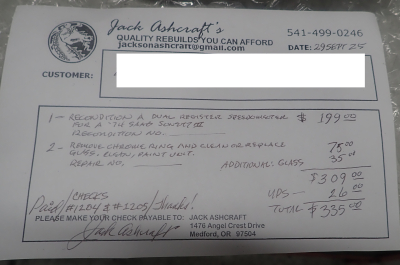 Jack Ashcraft's
QUALITY REBUILDS YOU CAN AFFORD
jacksonashcraft@gmail.com
541-499-0246
DATE: 29 SEPT 25
CUSTOMER:
1 - RECONDITION A DUAL REGISTER SPEEDOMETER $ 199.00
FOR A '74 SAAB SONETT III
RECONDITION NO.
2 - REMOVE CHROME RING AND CLEAN OR REPLACE 75.00
GLASS. CLEAN, PAINT UNIT. ADDITIONAL: GLASS 35.00
REPAIR NO.
$ 309.00
UPS - 26.00
TOTAL $ 335.00
Paid / CHECKS
#1204 & #1205 / Thanks!
PLEASE MAKE YOUR CHECK PAYABLE TO: JACK ASHCRAFT
1476 Angel Crest Drive
Medford, OR 97504
Jack Ashcraft